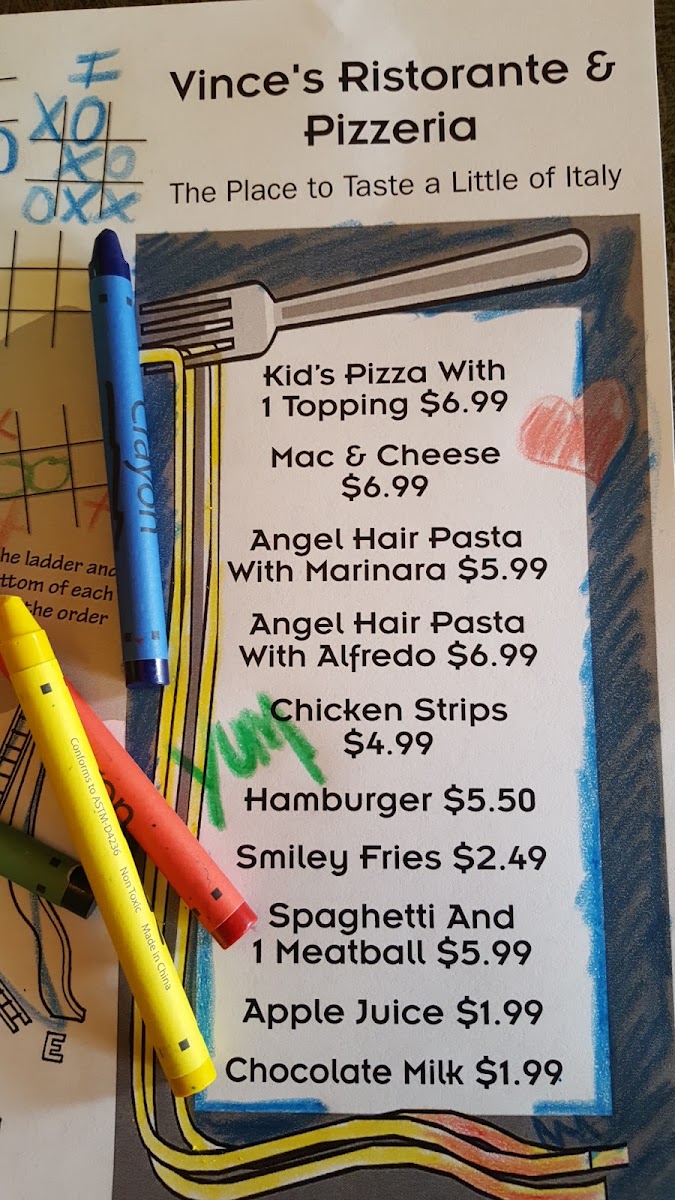 Vince's Ristorante &
Pizzeria
The Place to Taste a Little of Italy
I
XO
XO
OXX
Kid's Pizza With
1 Topping $6.99
Mac & Cheese
$6.99
Angel Hair Pasta
With Marinara $5.99
Angel Hair Pasta
With Alfredo $6.99
Chicken Strips
$4.99
Yum
Hamburger $5.50
Smiley Fries $2.49
Spaghetti And
1 Meatball $5.99
Apple Juice $1.99
Chocolate Milk $1.99
crayon
he ladder and
ttom of each
the order
Conforms to ASTM-D4236 Non Toxic Made in China
E